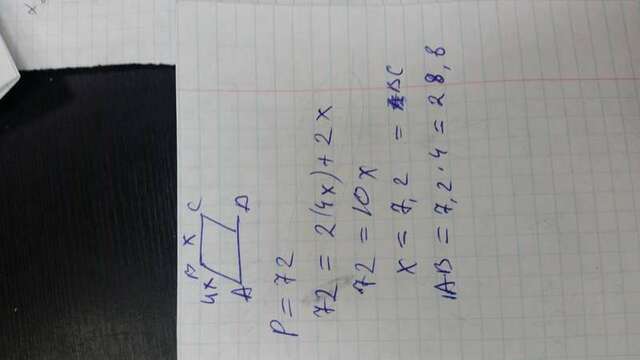 B x C
4x
A D
P = 72
72 = 2(4x) + 2x
72 = 10x
x = 7,2 = BC
AB = 7,2 · 4 = 28,8